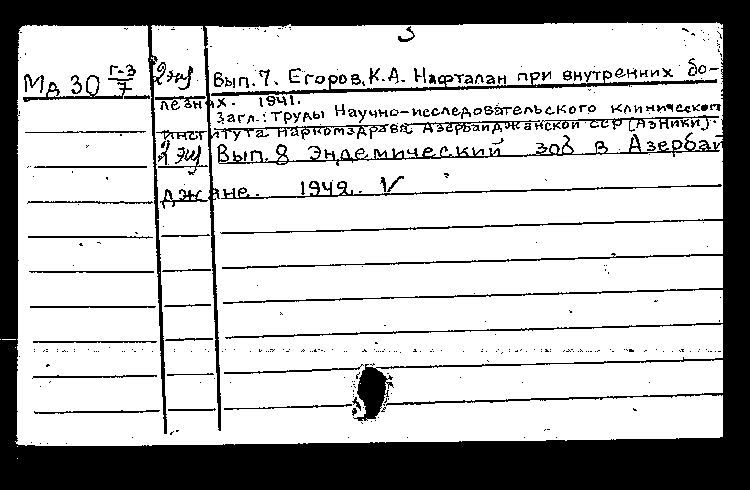 3
Мд 30 Г-3/7 2 экз Вып. 7. Егоров, К.А. Нафталан при внутренних бо-
лезнях. 1941.
Загл.: Труды Научно-исследовательского клинического
института Наркомздрава Азербайджанской ССР (Азники).
2 экз Вып. 8 Эндемический зоб в Азербай
джане. 1942. V